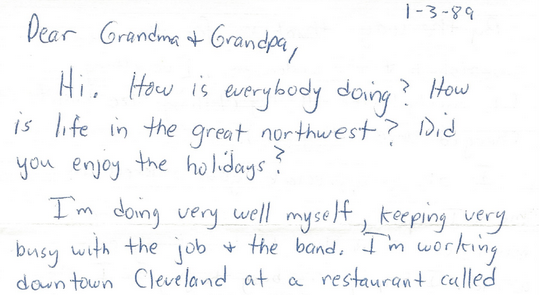 1-3-89
Dear Grandma & Grandpa,
Hi. How is everybody doing? How
is life in the great northwest? Did
you enjoy the holidays?
I'm doing very well myself, keeping very
busy with the job & the band. I'm working
downtown Cleveland at a restaurant called